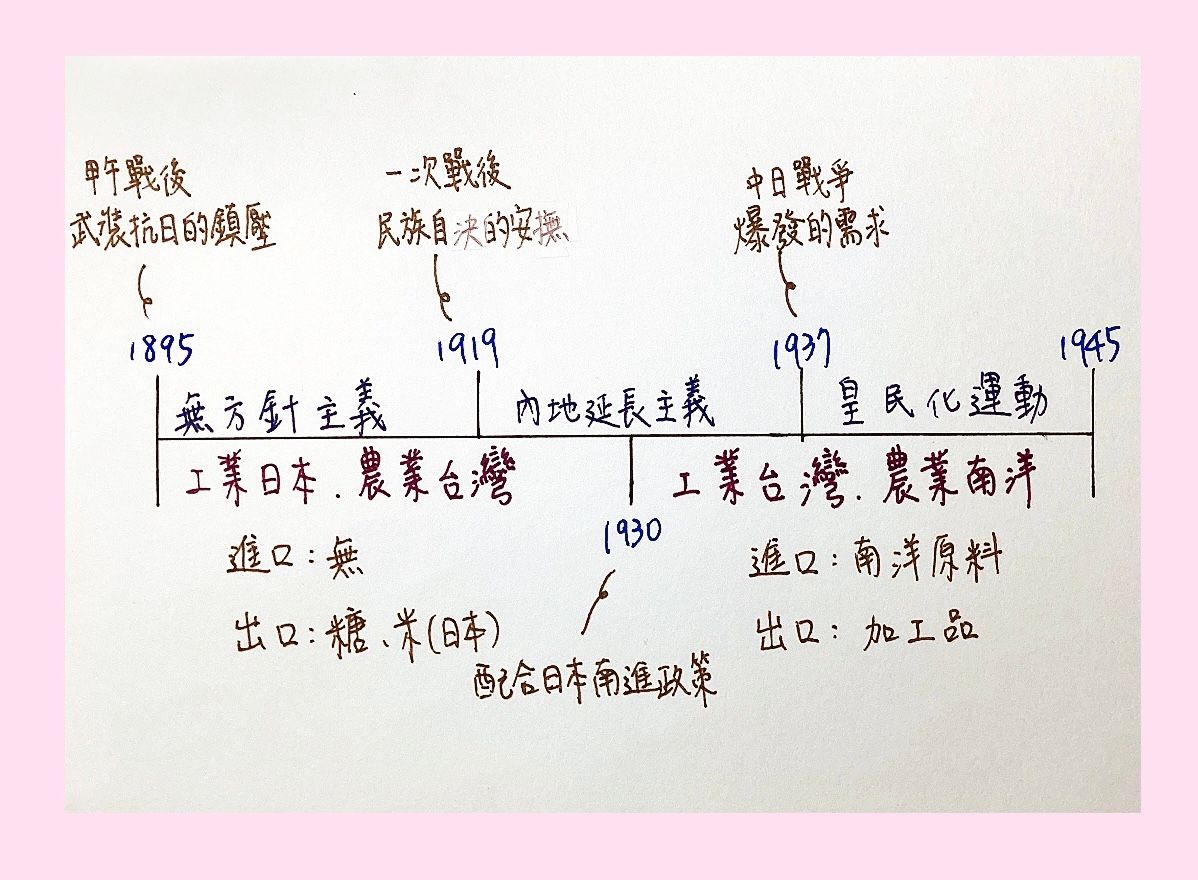 甲午戰後
武裝抗日的鎮壓
一次戰後
民族自決的安撫
中日戰爭
爆發的需求
1895
1919
1937
1945
無方針主義
內地延長主義
皇民化運動
工業日本．農業台灣
工業台灣．農業南洋
1930
進口：無
出口：糖、米(日本)
進口：南洋原料
出口：加工品
配合日本南進政策